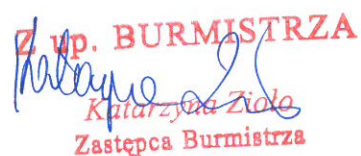 Z up. BURMISTRZA
Katarzyna Zioło
Zastępca Burmistrza